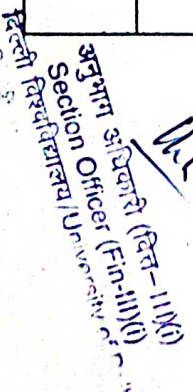 अनुभाग अधिकारी (वित्त-III)(i)
Section Officer (Fin-III)(i)
दिल्ली विश्वविद्यालय/University of